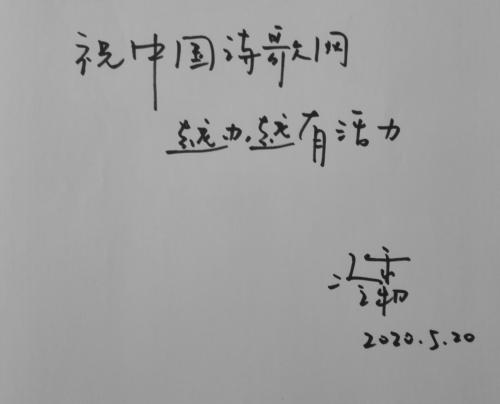 祝中国诗歌网
越办越有活力
2020.5.20